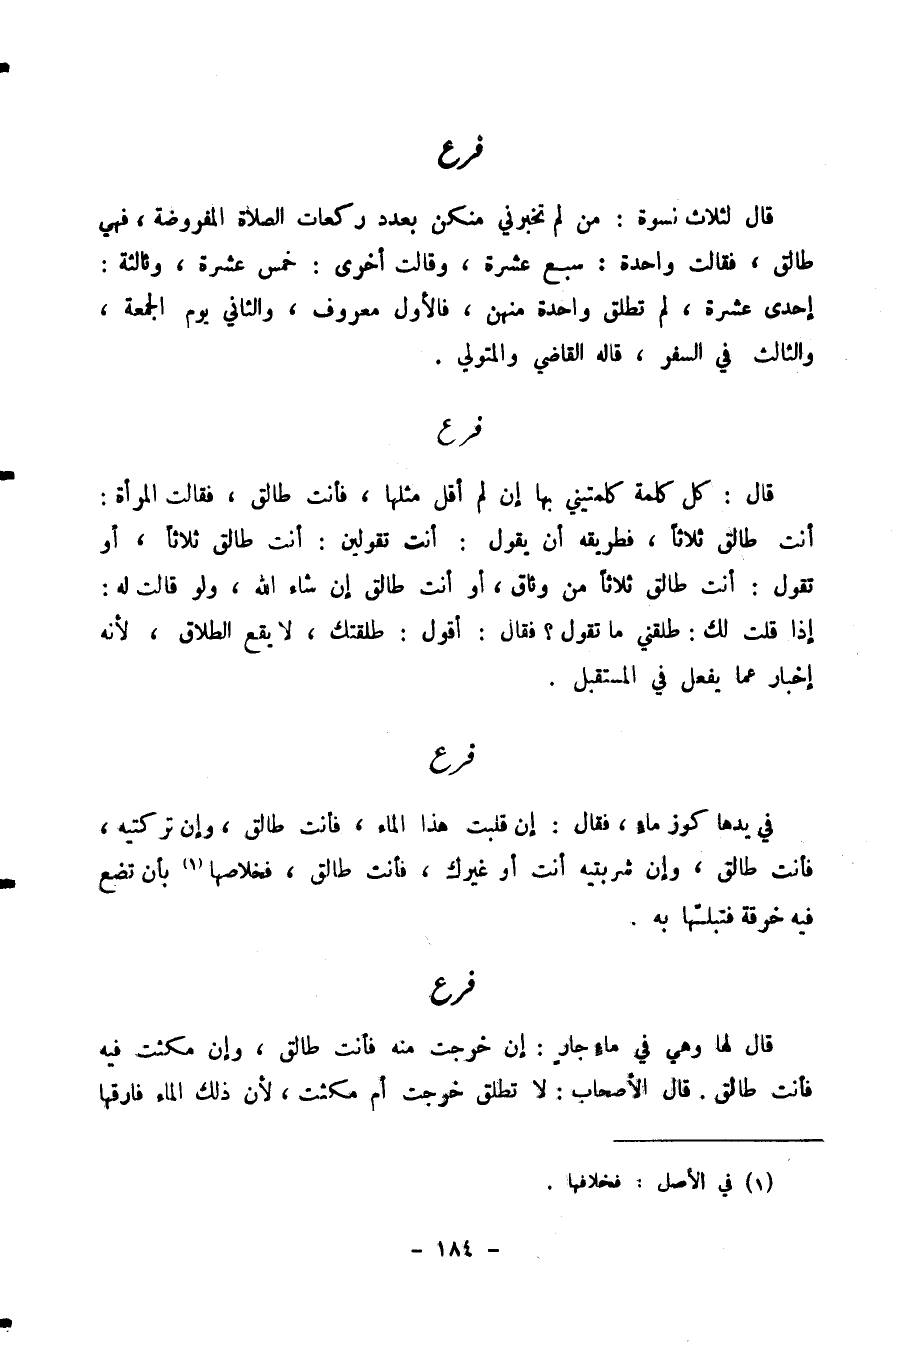 فرع
قال لثلاث نسوة : من لم تخبرني منكن بعدد ركعات الصلاة المفروضة ، فهي
طالق ، فقالت واحدة : سبع عشرة ، وقالت أخرى : خمس عشرة ، وثالثة :
إحدى عشرة ، لم تطلق واحدة منهن ، فالأول معروف ، والثاني يوم الجمعة ،
والثالث في السفر ، قاله القاضي والمتولي .
فرع
قال : كل كلمة كلمتيني بها إن لم أقل مثلها ، فأنت طالق ، فقالت المرأة :
أنت طالق ثلاثاً ، فطريقه أن يقول : أنت تقولين : أنت طالق ثلاثاً ، أو
تقول : أنت طالق ثلاثاً من وثاق ، أو أنت طالق إن شاء الله ، ولو قالت له :
إذا قلت لك : طلقني ما تقول ؟ فقال : أقول : طلقتك ، لا يقع الطلاق ، لأنه
إخبار عما يفعل في المستقبل .
فرع
في يدها كوز ماء ، فقال : إن قلبت هذا الماء ، فأنت طالق ، وإن تركتيه ،
فأنت طالق ، وإن شربتيه أنت أو غيرك ، فأنت طالق ، فخلاصها (١) بأن تضع
فيه خرقة فتبلّها به .
فرع
قال لها وهي في ماء جارٍ : إن خرجت منه فأنت طالق ، وإن مكثت فيه
فأنت طالق . قال الأصحاب : لا تطلق خرجت أم مكثت ، لأن ذلك الماء فارقها
(١) في الأصل : فخلافها .
- ١٨٤ -